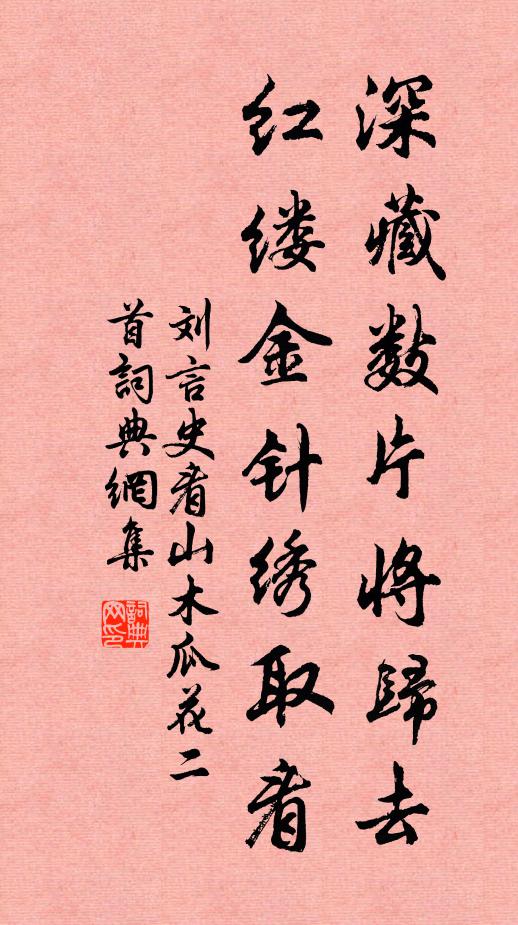 深藏数片将歸去
红缕金针绣取看
刘言史看山木瓜花二
首詞典網集
詞典网印